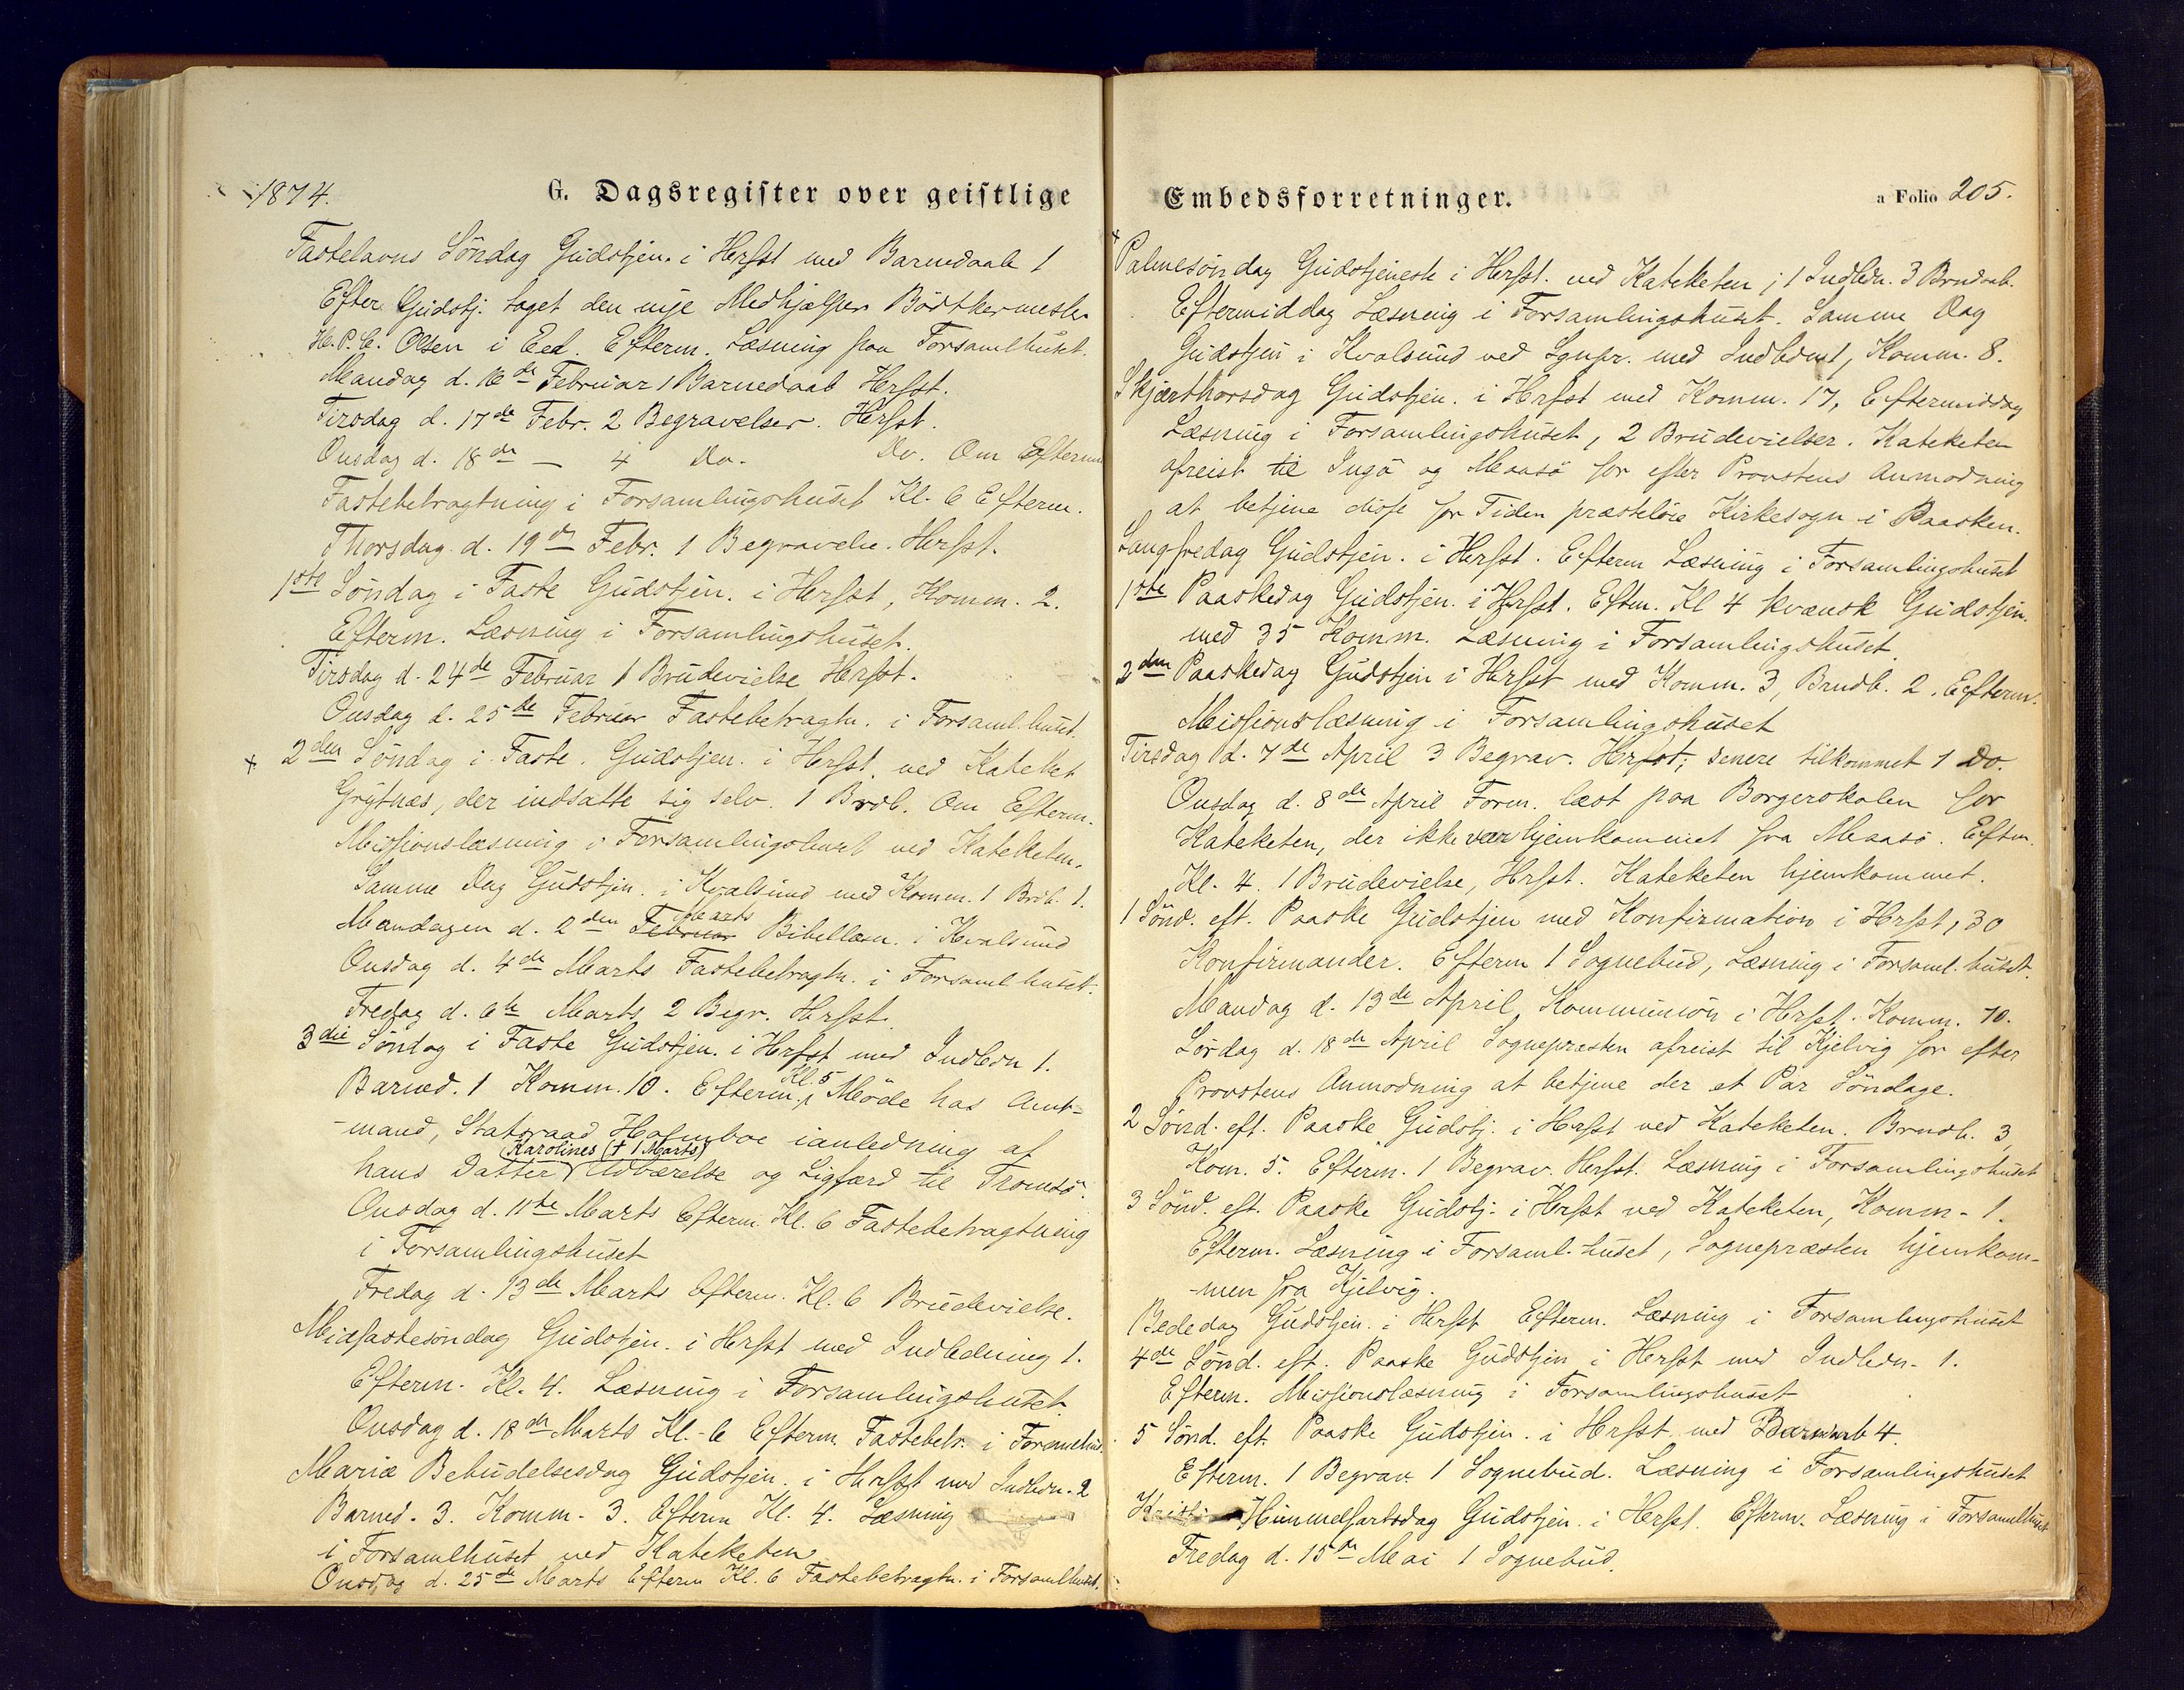 1874.
G. Dagsregister over geistlige
Fastelavns Söndag Gudstjen. i Hrfst med Barnedaab 1
Efter Gudstj. taget den nye Medhjælper Bödtkermester
H. P. C. Olsen i Eed. Efterm. Læsning paa Forsamlhuset.
Mandag d. 16de Februar 1 Barnedaab Hrfst.
Tirsdag d. 17de Febr. 2 Begravelser. Hrfst.
Onsdag d. 18de — 4 Do. Do. Om Efterm
Fastebetragtning i Forsamlingshuset Kl. 6 Efterm.
Thorsdag d. 19de Febr. 1 Begravelse. Hrfst.
1ste Söndag i Faste Gudstjen. i Hrfst, Komm. 2.
Efterm. Læsning i Forsamlingshuset.
Tirsdag d. 24de Februar 1 Brudevielse Hrfst.
Onsdag d. 25de Februar Fastebetragtn. i Forsaml.huset.
+ 2den Söndag i Faste. Gudstjen. i Hrfst. ved Kateket
Grytnæs, der indsatte sig selv. 1 Brdb. Om Efterm.
Missionslæsning i Forsamlingshuset ved Kateketen.
Samme Dag Gudstjen. i Kvalsund med Komm. 1 Brdb. 1.
Mandagen d. 2den Februar Marts Bibellæsn. i Kvalsund
Onsdag d. 4de Marts Fastebetragtn. i Forsaml.huset.
Fredag d. 6te Marts 2 Begr. Hrfst.
3die Söndag i Faste Gudstjen. i Hrfst med Indledn 1.
Barned. 1 Komm. 10. Efterm. Kl. 5 Möde hos Amt=
-mand, Statsraad Holmboe ianledning af
hans Datter Karolines († 1 Marts) Udbærelse og Ligfærd til Tromsö.
Onsdag d. 11te Marts Efterm Kl. 6 Fastebetragtning
i Forsamlingshuset
Fredag d. 13de Marts Efterm. Kl. 6 Brudevielse.
Midfastesöndag Gudstjen. i Hrfst med Indledning 1.
Efterm. Kl. 4. Læsning i Forsamlingshuset.
Onsdag d. 18de Marts Kl. 6 Efterm. Fastebetr. i Forsmlhus.
Mariæ Bebudelsesdag Gudstjen. i Hrfst med Indledn. 2
Barned. 3. Komm. 3. Efterm Kl. 4. Læsning
i Forsamlhuset ved Kateketen
Onsdag d. 25de Marts Efterm Kl. 6 Fastebetragtn. i Forsamlhuset.
Embedsforretninger.
a Folio 205.
+ Palmesöndag Gudstjeneste i Hrfst. ved Kateketen; 1 Indledn. 3 Brndaab.
Eftermiddag Læsning i Forsamlingshuset. Samme Dag
Gudstjen i Kvalsund ved Sgnpr. med Indledn 1, Komm. 8.
Skjærthorsdag Gudstjen. i Hrfst med Komm. 17, Eftermiddag
Læsning i Forsamlingshuset, 2 Brudevielser. Kateketen
afreist til Ingö og Maasö for efter Provstens Anmodning
at betjene disse for Tiden præstelöse Kirkesogn i Paasken.
Langfredag Gudstjen. i Hrfst. Efterm Læsning i Forsamlingshuset
1ste Paaskedag Gudstjen. i Hrfst. Eftm. Kl 4 kvænsk Gudstjen.
med 35 Komm. Læsning i Forsamlingshuset.
2den Paaskedag Gudstjen i Hrfst med Komm. 3, Brndb. 2. Efterm.
Missionslæsning i Forsamlingshuset
Tirsdag d. 7de April 3 Begrav. Hrfst; senere tilkommet 1 Do.
Onsdag d. 8de April Form. læst paa Borgerskolen for
Kateketen, der ikke var hjemkommet fra Maasö. Eftm.
Kl. 4. 1 Brudevielse, Hrfst. Kateketen hjemkommet.
1 Sönd. eft. Paaske Gudstjen med Konfirmation i Hrfst, 30
Konfirmander. Efterm 1 Sognebud, Læsning i Forsaml.huset.
Mandag d. 13de April Kommunion i Hrfst. Komm. 70.
Lördag d. 18de April Sognepresten afreist til Kjelvig for efter
Provstens Anmodning at betjene der et Par Söndage.
2 Sönd. eft. Paaske Gudstj. i Hrfst ved Kateketen. Brndb. 3
Kom. 5. Efterm. 1 Begrav. Hrfst. Læsning i Forsamlingshuset
3 Sönd. eft. Paaske Gudstj. i Hrfst ved Kateketen, Komm. 1.
Efterm. Læsning i Forsaml.huset, Sognepræsten hjemkom-
-men fra Kjelvig.
Bededag Gudstjen. i Hrfst Efterm. Læsning i Forsamlingshuset
4de Sönd. eft. Paaske Gudstjen i Hrfst med Indledn. 1.
Efterm. Missionslæsning i Forsamlingshuset
5 Sönd. eft. Paaske Gudstjen. i Hrfst med 4.
Efterm. 1 Begrav. 1 Sognebud. Læsning i Forsamlingshuset
Kristi Himmelfartsdag Gudstjen. i Hrfst. Efterm. Læsning i Forsamlhuset
Fredag d. 15de Mai 1 Sognebud.